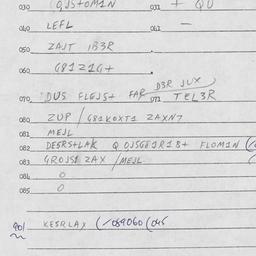 030 QJS+OM1N 031 + QU
040 LEFL 041 —
050 ZAJT 1B3R
060 G81Z1G+
D3R JUX
070 DUS FLEJS+ FAR 071 TEL3R
080 ZUP / G81KOXT1 ZAXN7
081 MEJL
082 DEGRS+LAK QOJSGE1R18+ FLOM1N
083 GROJS1 ZAX /MEJL
084 0
085 0
901 KESRLAX (/089060 (045